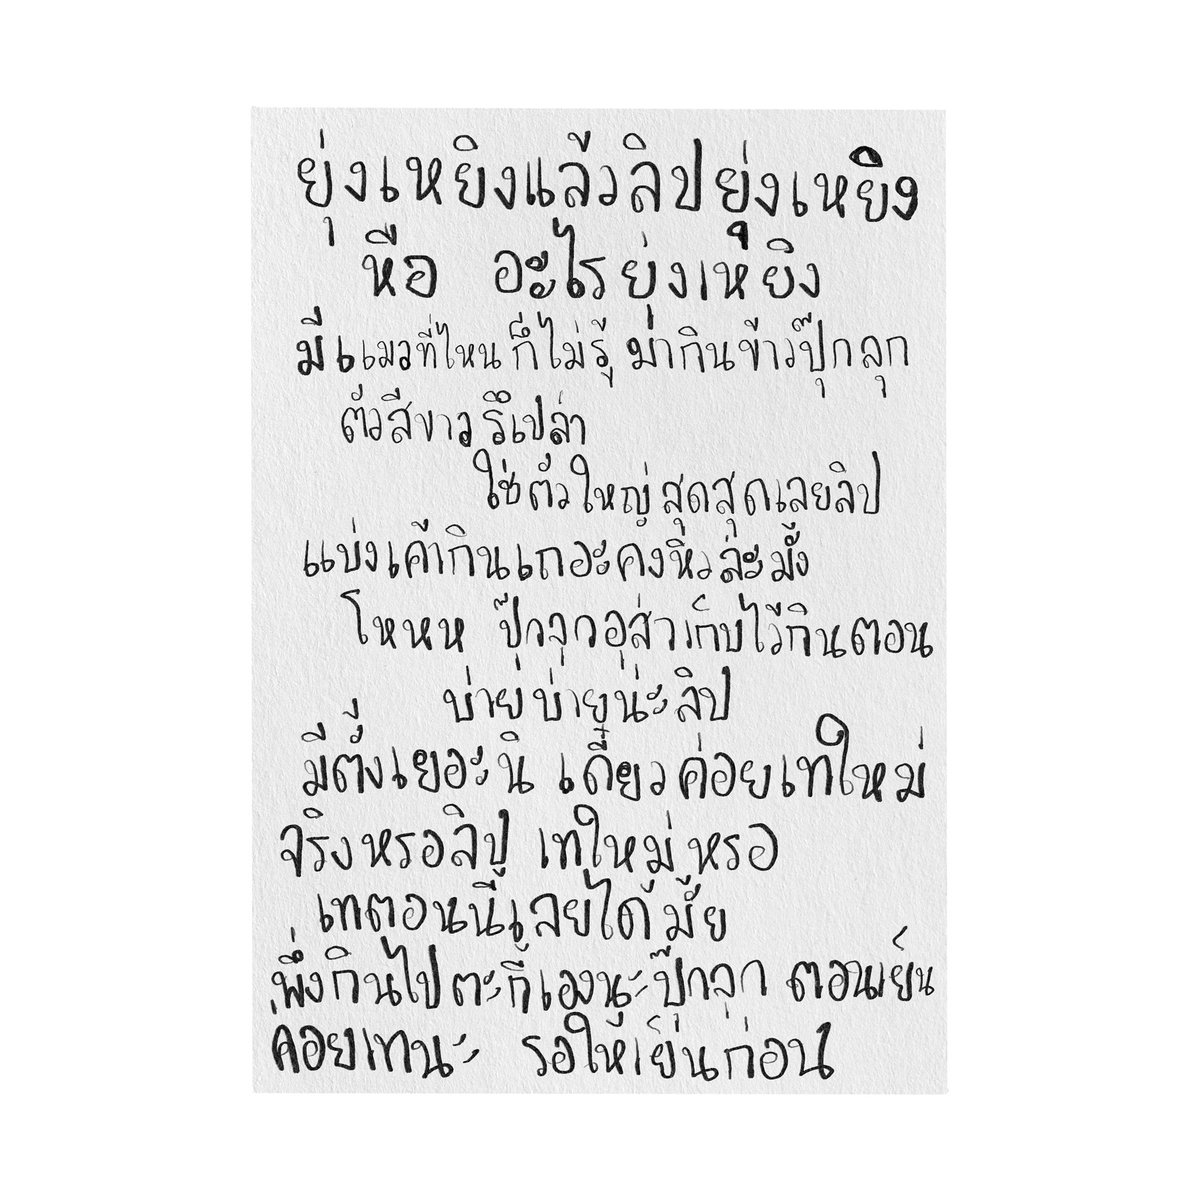 ยุ่งเหยิงแล้วลิปยุ่งเหยิง
หือ อะไรยุ่งเหยิง
มีแมวที่ไหนก็ไม่รู้ มากินข้าวปุ๊กลุก
ตัวสีขาวรึเปล่า
ใช่ตัวใหญ่สุดสุดเลยลิป
แบ่งเค้ากินเถอะคงหิวล่ะมั้ง
โหหห ปุ๊กลุกอุส่าเก็บไว้กินตอน
บ่ายบ่ายน่ะลิป
มีตั้งเยอะนิ เดี๋ยวค่อยเทใหม่
จริงหรอลิป เทใหม่หรอ
เทตอนนี้เลยได้มั้ย
พึ่งกินไปตะกี้เองนะปุ๊กลุก ตอนเย็น
ค่อยเทนะ รอให้เย็นก่อน